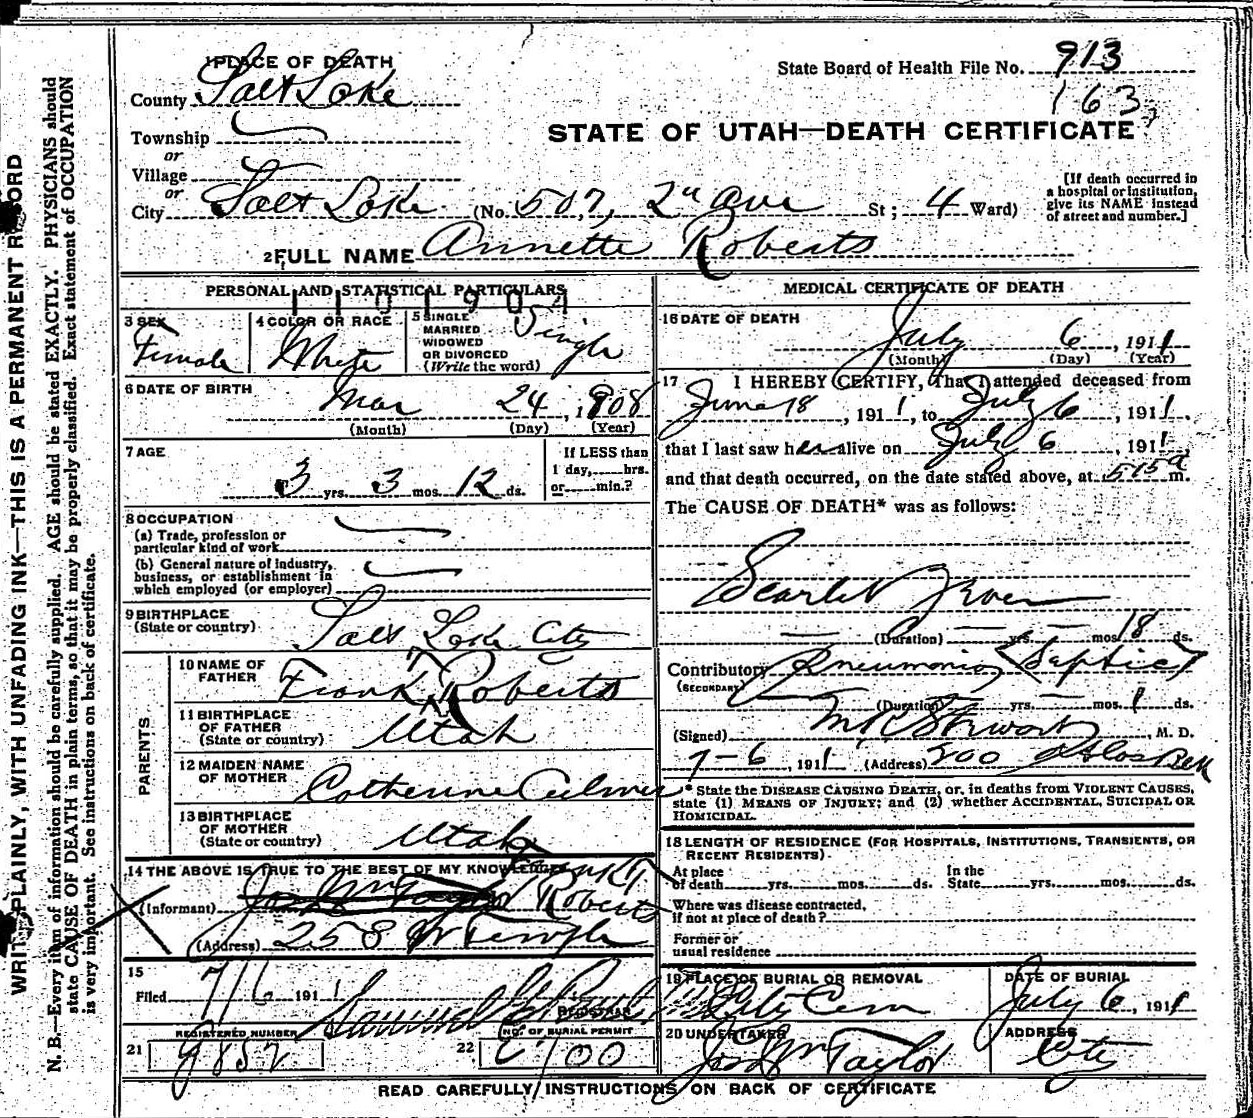 1 PLACE OF DEATH
County Salt Lake
Township
or
Village
or
City Salt Lake (No. 507, 2nd Ave St; 4 Ward)
State Board of Health File No. 913
163
STATE OF UTAH—DEATH CERTIFICATE
[If death occurred in
a hospital or institution,
give its NAME instead
of street and number.]
2 FULL NAME Annette Roberts
PERSONAL AND STATISTICAL PARTICULARS
1101904
3 SEX
Female
4 COLOR OR RACE
White
5 SINGLE
MARRIED
WIDOWED
OR DIVORCED
(Write the word)
Single
6 DATE OF BIRTH
Mar 24, 1908
(Month) (Day) (Year)
7 AGE
3 yrs. 3 mos. 12 ds.
If LESS than
1 day, hrs.
or min.?
8 OCCUPATION
(a) Trade, profession or
particular kind of work
(b) General nature of industry,
business, or establishment in
which employed (or employer)
9 BIRTHPLACE
(State or country)
Salt Lake City
PARENTS
10 NAME OF
FATHER
Frank T Roberts
11 BIRTHPLACE
OF FATHER
(State or country)
Utah
12 MAIDEN NAME
OF MOTHER
Catherine Culmer
13 BIRTHPLACE
OF MOTHER
(State or country)
Utah
14 THE ABOVE IS TRUE TO THE BEST OF MY KNOWLEDGE
(Informant) Jos Wm Taylor Frank T Roberts
(Address) 258 W Temple
15
Filed 7/6 1911
REGISTRAR
REGISTERED NUMBER
21 9852
NO. OF BURIAL PERMIT
22 E 700
MEDICAL CERTIFICATE OF DEATH
16 DATE OF DEATH
July 6, 1911
(Month) (Day) (Year)
17 I HEREBY CERTIFY, That I attended deceased from
June 18, 1911, to July 6, 1911.
that I last saw her alive on July 6, 1911
and that death occurred, on the date stated above, at 515 a m.
The CAUSE OF DEATH* was as follows:
Scarlet Fever
(Duration) yrs. mos. 18 ds.
Contributory Pneumonia (Septic)
(SECONDARY)
(Duration) yrs. mos. 1 ds.
(Signed) M R Stewart, M. D.
7-6, 1911 (Address) 200
* State the DISEASE CAUSING DEATH, or, in deaths from VIOLENT CAUSES,
state (1) MEANS OF INJURY; and (2) whether ACCIDENTAL, SUICIDAL OR
HOMICIDAL.
18 LENGTH OF RESIDENCE (FOR HOSPITALS, INSTITUTIONS, TRANSIENTS, OR
RECENT RESIDENTS).
At place
of death yrs. mos. ds.
In the
State yrs. mos. ds.
Where was disease contracted,
if not at place of death?
Former or
usual residence
19 PLACE OF BURIAL OR REMOVAL
City Cem
DATE OF BURIAL
July 6, 1911
20 UNDERTAKER
Jos Wm Taylor
ADDRESS
City
READ CAREFULLY INSTRUCTIONS ON BACK OF CERTIFICATE
WRITE PLAINLY, WITH UNFADING INK—THIS IS A PERMANENT RECORD
N. B.—Every item of information should be carefully supplied. AGE should be stated EXACTLY. PHYSICIANS should
state CAUSE OF DEATH in plain terms, so that it may be properly classified. Exact statement of OCCUPATION
is very important. See instructions on back of certificate.